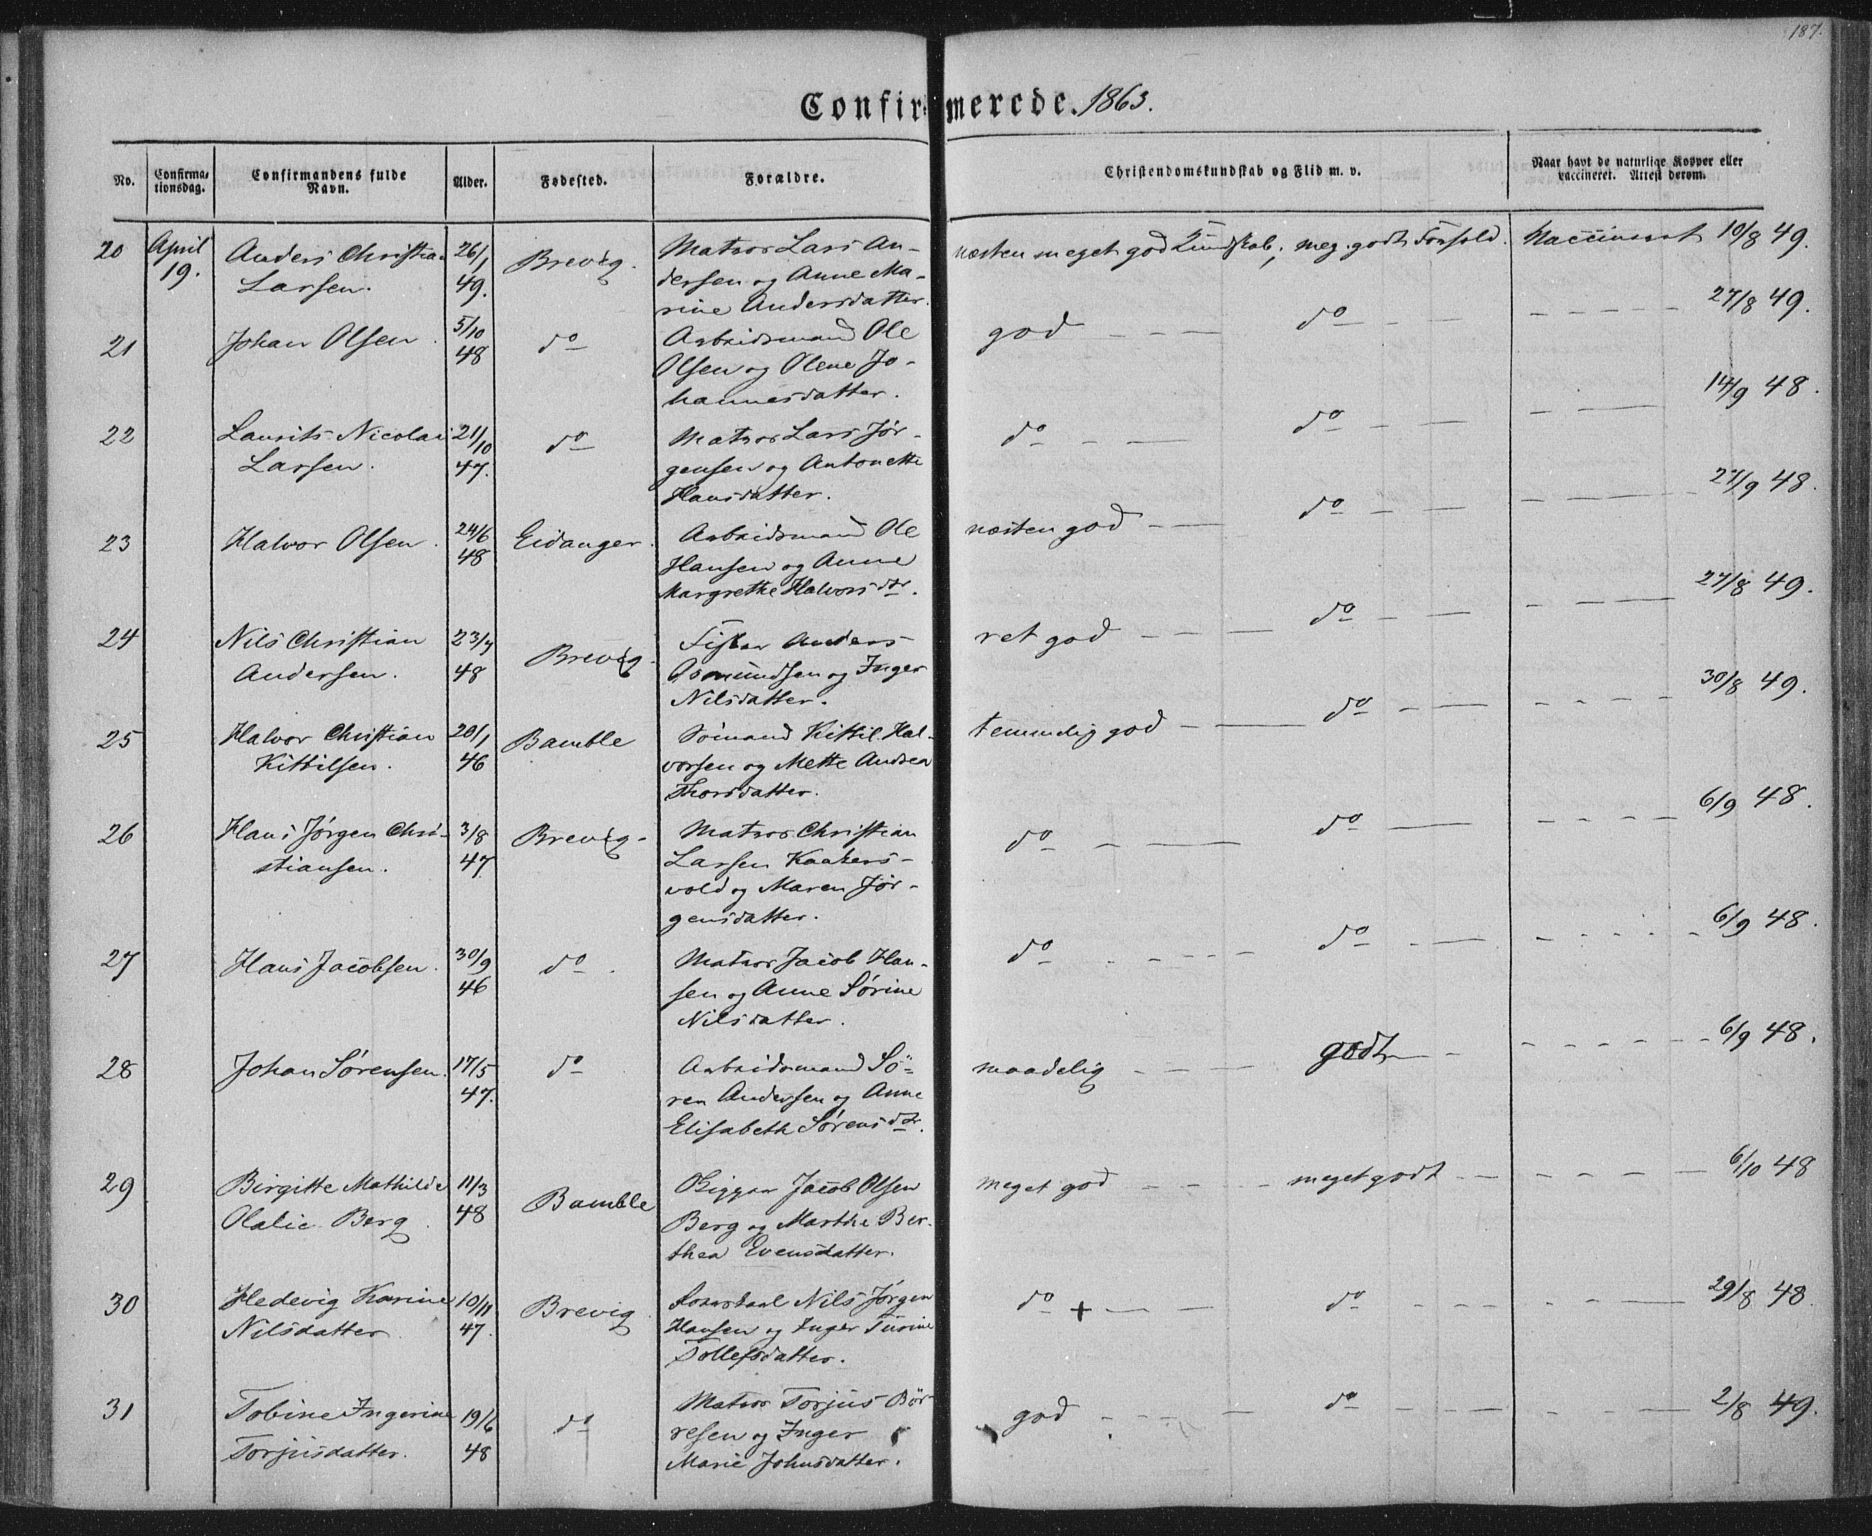 187.
Confirmerede. 1863.
No.
Confirmationsdag.
Confirmandens fulde Navn.
Alder.
Fødested.
Forældre.
Christendomskundskab og Flid m. v.
Naar havt de naturlige Kopper eller vaccineret. Attest derom.
20 April 19. Anders Christian Larsen. 26/1 49. Brevig. Matros Lars Andersen og Anne Marine Andersdatter. næsten meget god Kundskab; meg. godt Forhold. Vaccineret 10/8 49.
21 Johan Olsen. 5/10 48 do Arbeidsmand Ole Olsen og Olene Johannesdatter. god do 27/8 49.
22 Laurits Nicolai Larsen. 21/10 47. do Matros Lars Jørgensen og Antonette Hansdatter. do do 14/9 48.
23 Halvor Olsen. 24/6 48 Eidanger. Arbeidsmand Ole Hansen og Anne Margrethe Halvorsdtr. næsten god do 27/9 48.
24 Nils Christian Andersen. 23/7 48 Brevig. Fisker Anders Asmundsen og Inger Nilsdatter. ret god do 27/8 49.
25 Halvor Christian Kittilsen. 20/1 46 Bamble Sömand Kittil Halvorsen og Mette Andrea Thorsdatter. temmelig god do 30/8 49.
26 Hans Jørgen Christiansen. 3/8 47 Brevig. Matros Christian Larsen Kaakersvold og Maren Jørgensdatter. do do 6/9 48.
27 Hans Jacobsen. 30/9 46 do. Matros Jacob Hansen og Anne Sørine Nilsdatter. do do 6/9 48.
28 Johan Sørensen. 17/5 47. do Arbeidsmand Sören Andersen og Anne Elisabeth Sørensdtr. maadelig godt 6/9 48.
29 Birgitte Mathilde Olalie Berg. 11/3 48 Bamble Rigger Jacob Olsen Berg og Marthe Berthea Evensdatter. meget god meget godt 6/10 48
30 Hedevig Karine Nilsdatter. 10/11 47. Brevig. Nils Jørgen Hansen og Inger Turine Tollefsdatter. do + do 29/8 48.
31 Tobine Ingerine Torjusdatter. 19/6 48 do Matros Torjus Börresen og Inger Marie Johnsdatter. god do 2/8 49.